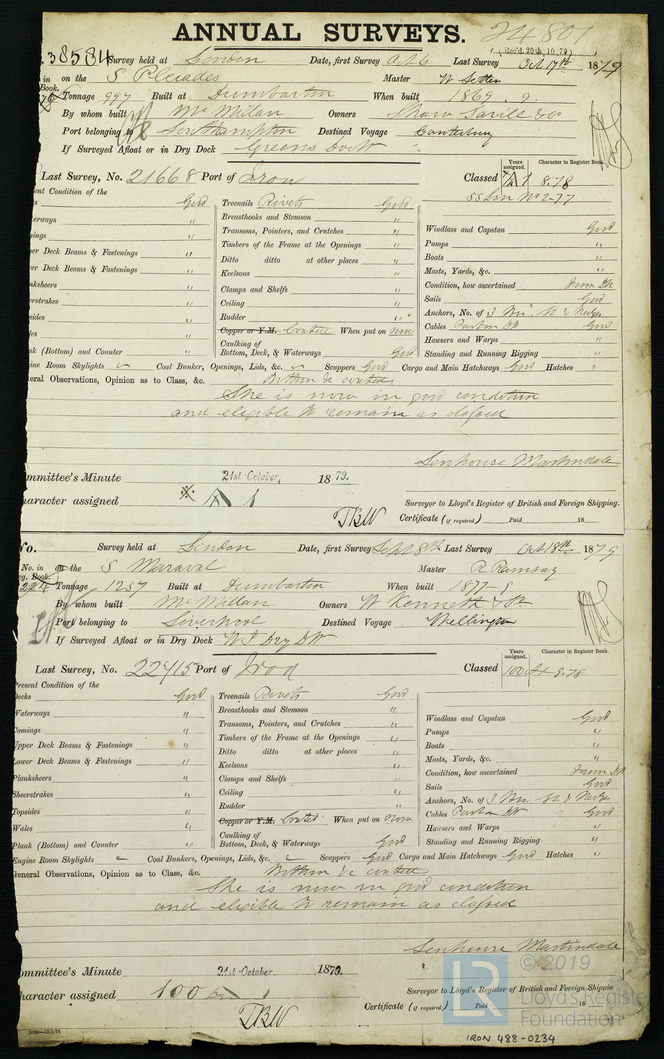 ANNUAL SURVEYS.
24,801
Rec'd. 20th 10 79
38584 Survey held at London Date, first Survey Oct 6 Last Survey Oct 17th 1879
in on the S Pleiades Master
Book.
Tonnage 997 Built at Dumbarton When built 1869. 9.
By whom built McMillan Owners Shaw Savill & Co
Port belonging to Southampton Destined Voyage Canterbury
If Surveyed Afloat or in Dry Dock Greens Dock
Last Survey, No. 21668 Port of Iron Classed
Years assigned. Character in Register Book.
A 1 8.78
SS Lon No 2-77
ent Condition of the
Good
erways "
ings "
er Deck Beams & Fastenings "
er Deck Beams & Fastenings "
nksheers "
rstrakes "
sides "
les "
k (Bottom) and Counter "
Treenails Rivets Good
Breasthooks and Stemson "
Transoms, Pointers, and Crutches "
Timbers of the Frame at the Openings "
Ditto ditto at other places "
Keelsons "
Clamps and Shelfs "
Ceiling "
Rudder "
Copper or Y.M. Coated When put on now
Caulking of
Bottom, Deck, & Waterways Good
Windlass and Capstan Good
Pumps "
Boats "
Masts, Yards, &c. "
Condition, how ascertained From Dk
Sails Good
Anchors, No. of 3 Brs.
Cables Good
Hawsers and Warps "
Standing and Running Rigging "
ine Room Skylights Coal Bunker, Openings, Lids, &c. Scuppers Good Cargo and Main Hatchways Good Hatches "
eral Observations, Opinion as to Class, &c. Bottom &c coated
She is now in good condition
and eligible to remain as classed
Senhouse Martindale
mmittee's Minute 21st October, 1879.
aracter assigned A 1
Surveyor to Lloyd's Register of British and Foreign Shipping.
TBW
Certificate (if required) Paid 18
No. Survey held at London Date, first Survey Sept 8th Last Survey Oct 18th 1879
No. in on the S Maraval Master R Ramsay
g. Book.
Tonnage 1257 Built at Dumbarton When built 1877
By whom built McMillan Owners W Kenneth
Port belonging to Liverpool Destined Voyage Wellington
If Surveyed Afloat or in Dry Dock
Last Survey, No. 22415 Port of Iron Classed
Years assigned. Character in Register Book.
100 A 1 8.78
Present Condition of the
Decks Good
Waterways "
Comings "
Upper Deck Beams & Fastenings "
Lower Deck Beams & Fastenings "
Planksheers "
Sheerstrakes "
Topsides "
Wales "
Plank (Bottom) and Counter "
Treenails Rivets Good
Breasthooks and Stemson "
Transoms, Pointers, and Crutches "
Timbers of the Frame at the Openings "
Ditto ditto at other places "
Keelsons "
Clamps and Shelfs "
Ceiling "
Rudder "
Copper or Y.M. Coated When put on now
Caulking of
Bottom, Deck, & Waterways Good
Windlass and Capstan Good
Pumps "
Boats "
Masts, Yards, &c. "
Condition, how ascertained From Dk
Sails Good
Anchors, No. of 3 Brs.
Cables Good
Hawsers and Warps "
Standing and Running Rigging "
Engine Room Skylights Coal Bunkers, Openings, Lids, &c. Scuppers Good Cargo and Main Hatchways Good Hatches "
eneral Observations, Opinion as to Class, &c. Bottom &c coated
She is now in good condition
and eligible to remain as classed
Senhouse Martindale
ommittee's Minute 21st October 1879.
haracter assigned 100 A 1
Surveyor to Lloyd's Register of British and Foreign Shippin
TBW
Certificate (if required) Paid 18
LR © 2019
Lloyd's Registe
Foundation
IRON 488-0234